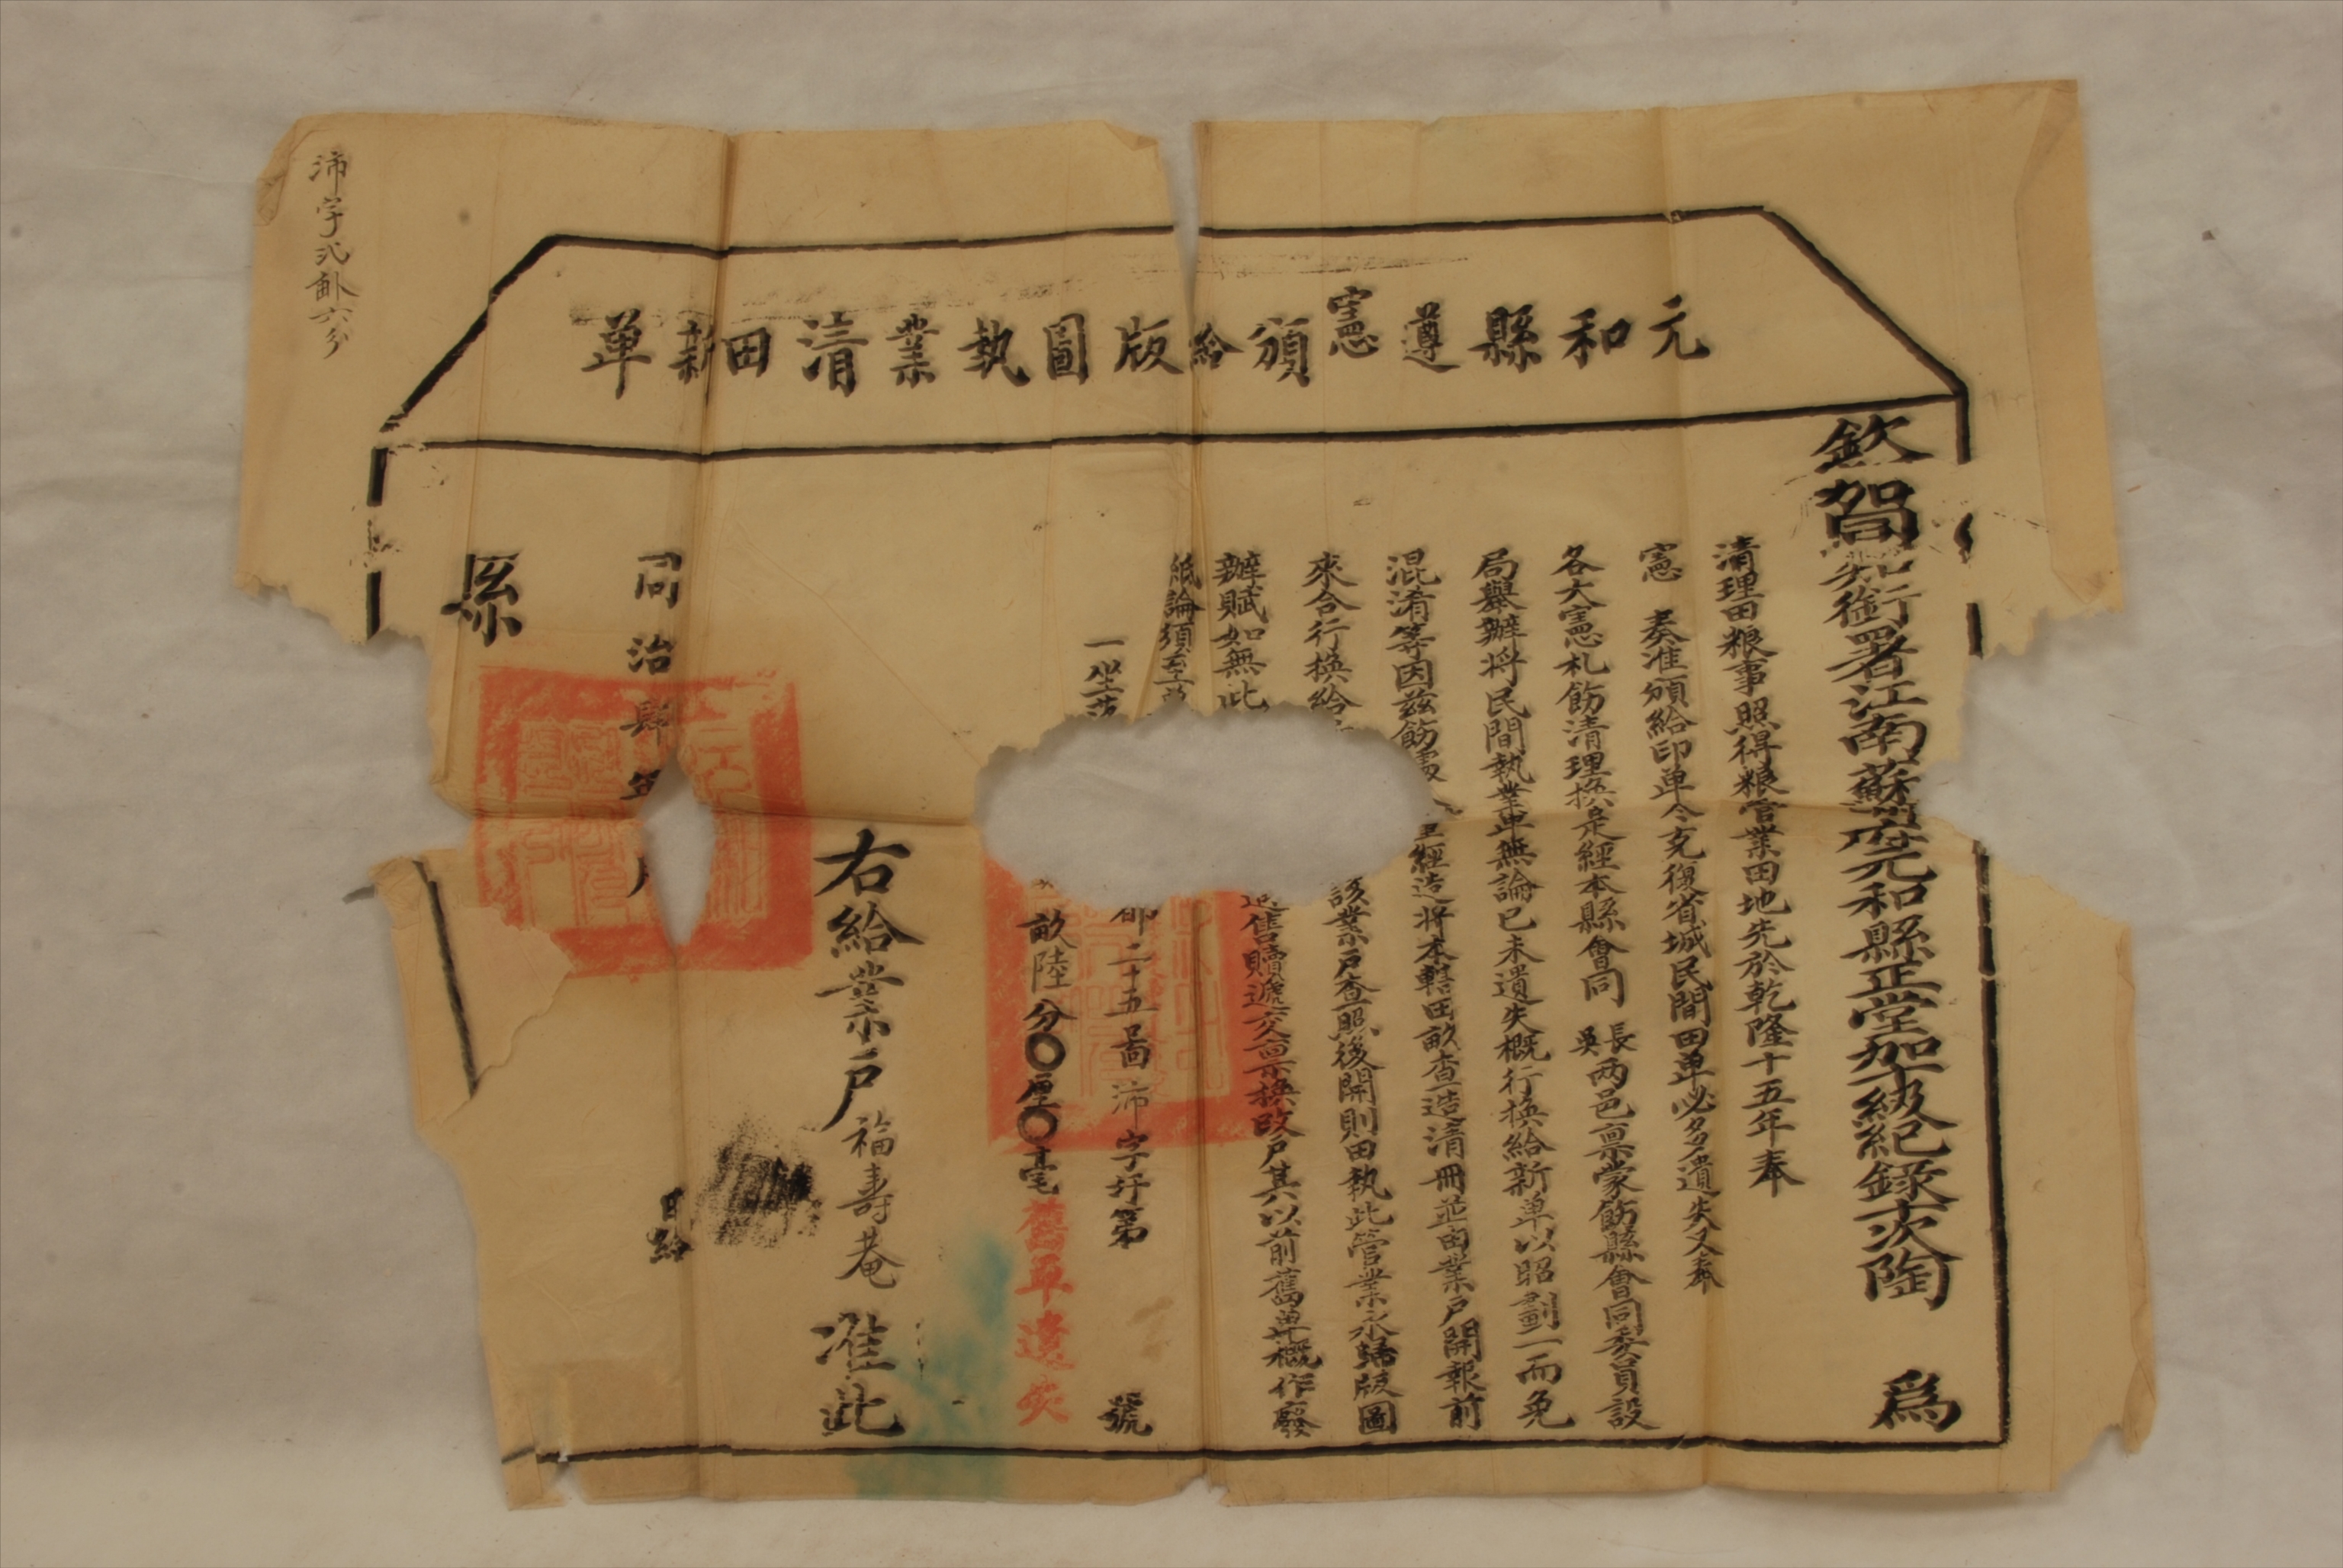 元和縣遵憲頒給版圖執業清田新单
欽加同知銜署江南蘇州府元和縣正堂加十級紀錄十次陶 爲
清理田粮事照得粮官業田地先於乾隆十五年奉
憲 奏准頒給印单今克復省城民間田单必多遺失又奉
各大憲札飭清理換是經本縣會同 長吳 兩邑稟蒙飭縣會同委員設
局舉辦将民間執業单無論已未遺失概行换給新单以昭劃一而免
混淆等因兹飭 經造将本轄田畝查造清冊並由業户開報前
來合行换給 該業户查照後開則田執此管業永歸版圖
辦賦如無此 售贖遞交禀换改户其以前舊单概作廢
紙論須至
一坐落 都二十五啚沛字圩第 號
畝陸分〇厘〇毫 舊单遺失
右給業户福壽菴 准此
同治肆年 月 日給
縣
沛字弍畝六分